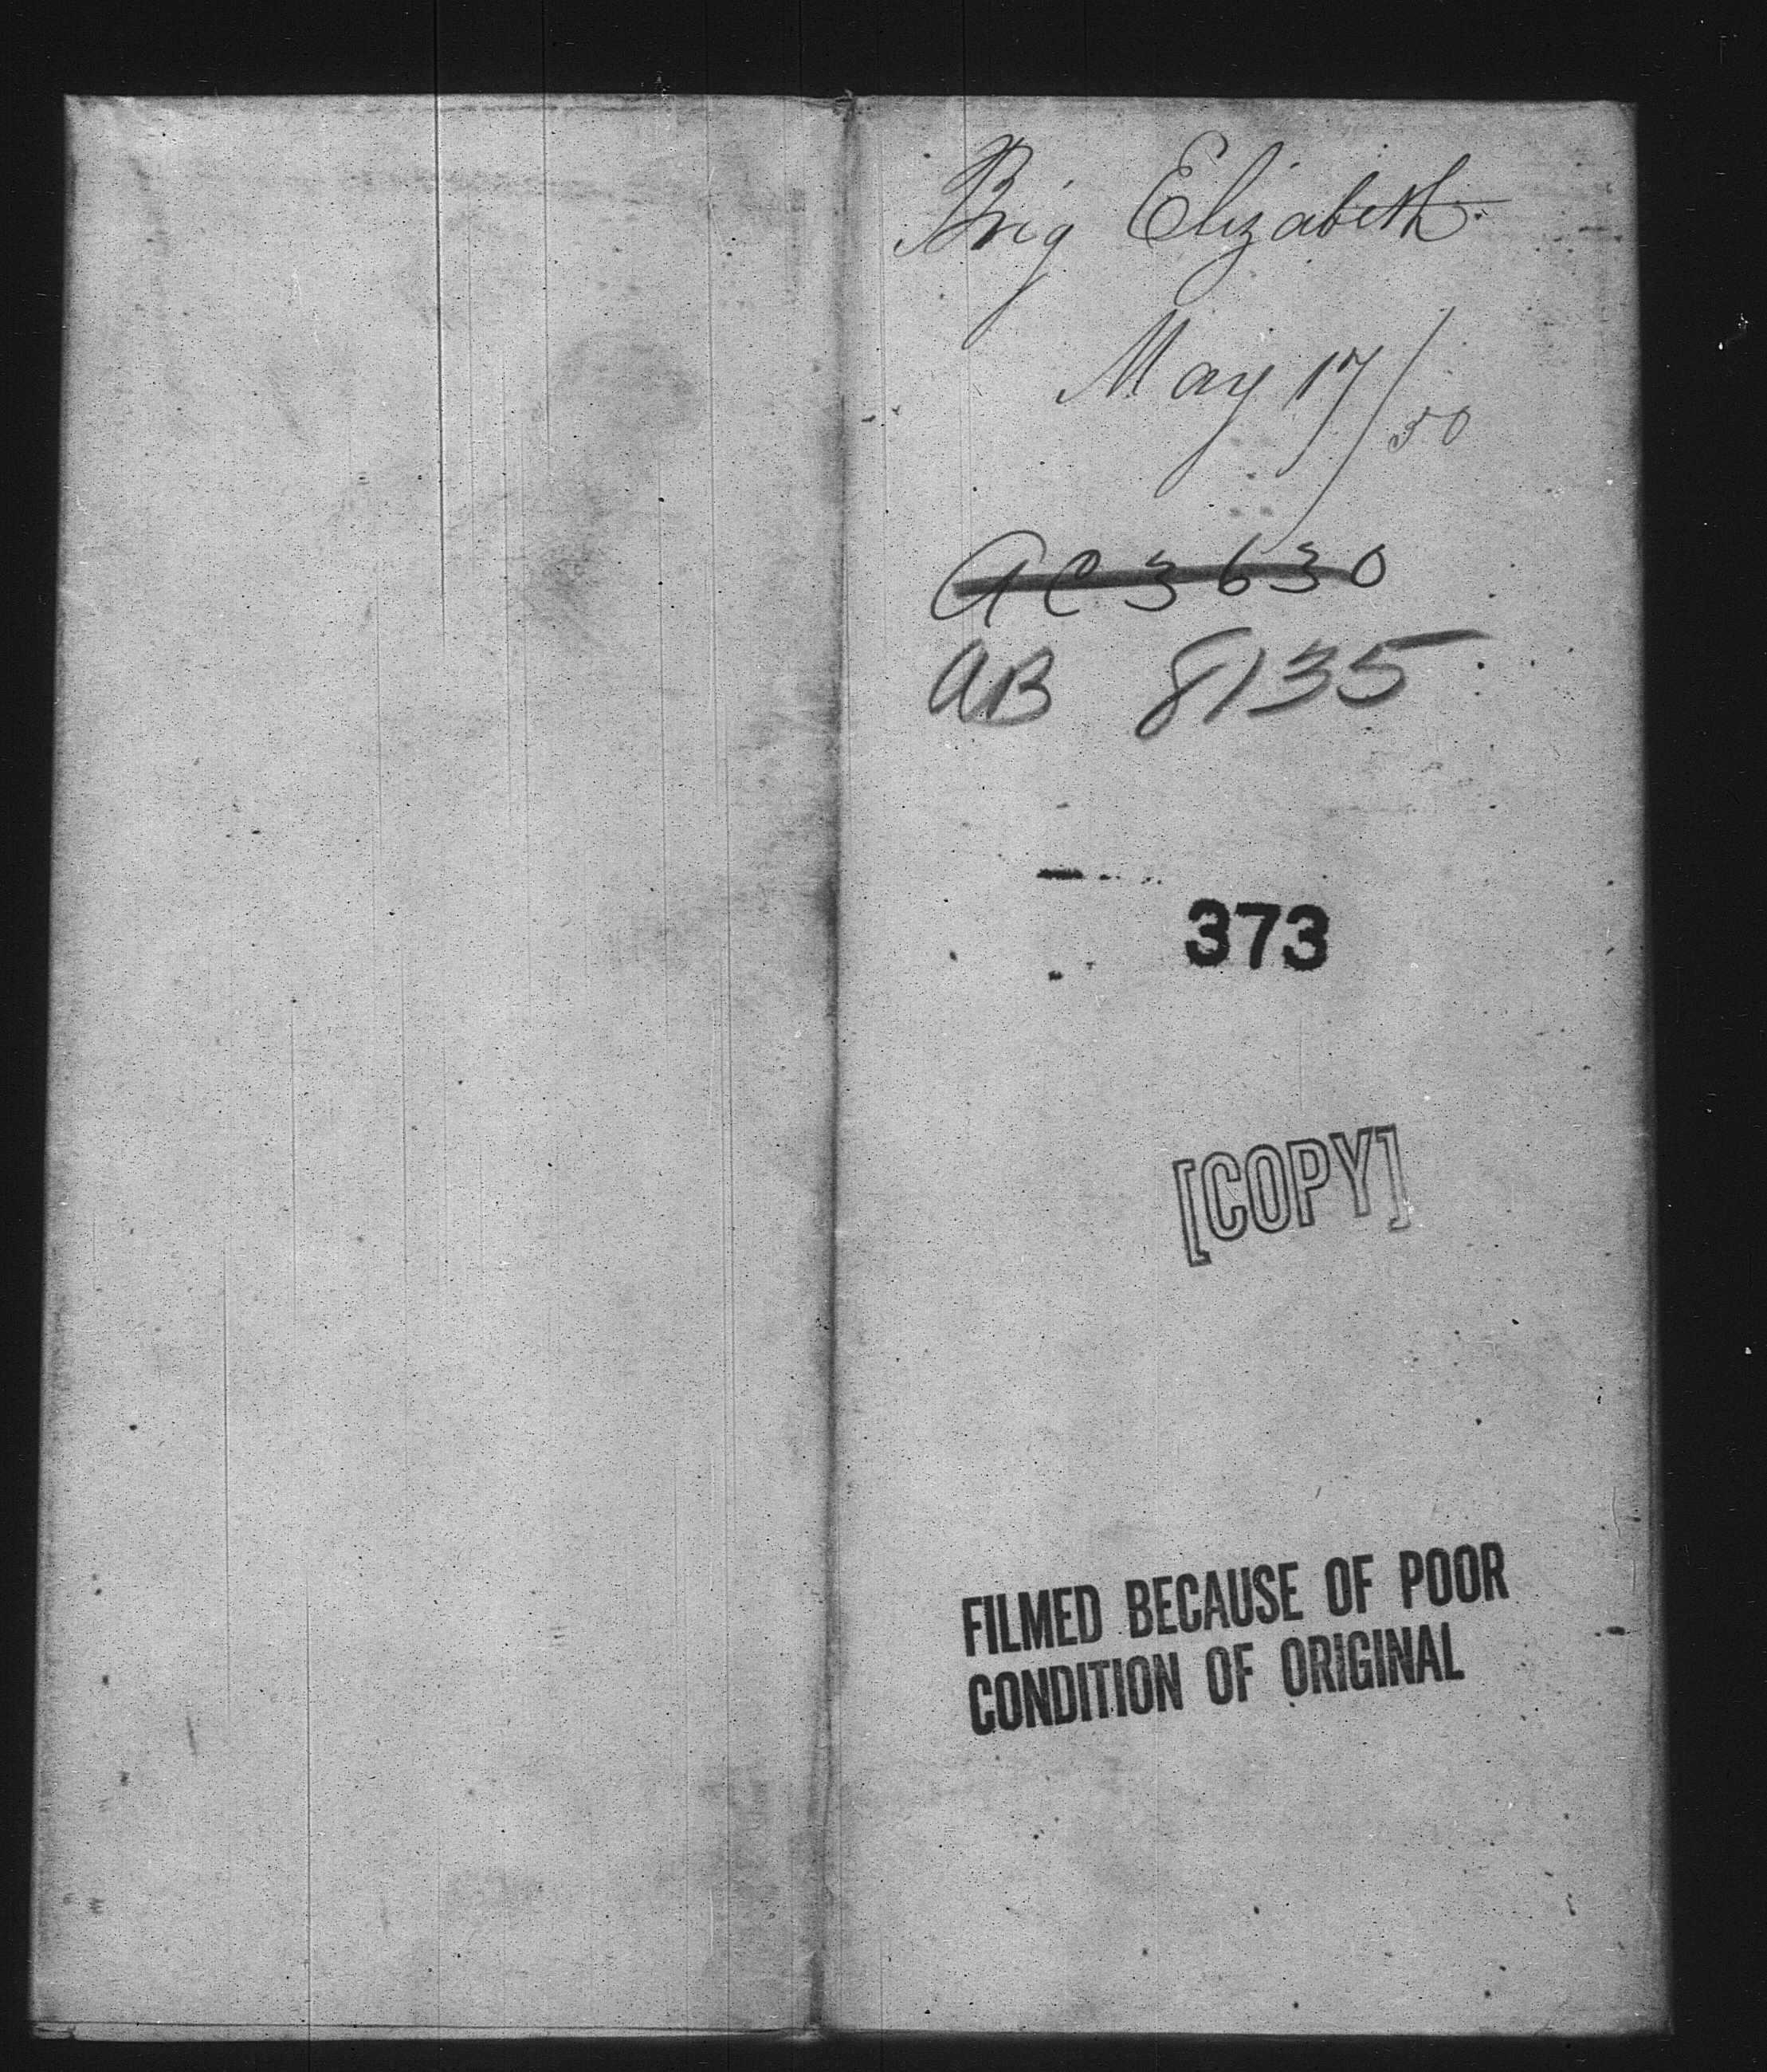 Brig Elizabeth
May 17/50
AC 3630
AB 8135
373
[COPY]
FILMED BECAUSE OF POOR
CONDITION OF ORIGINAL